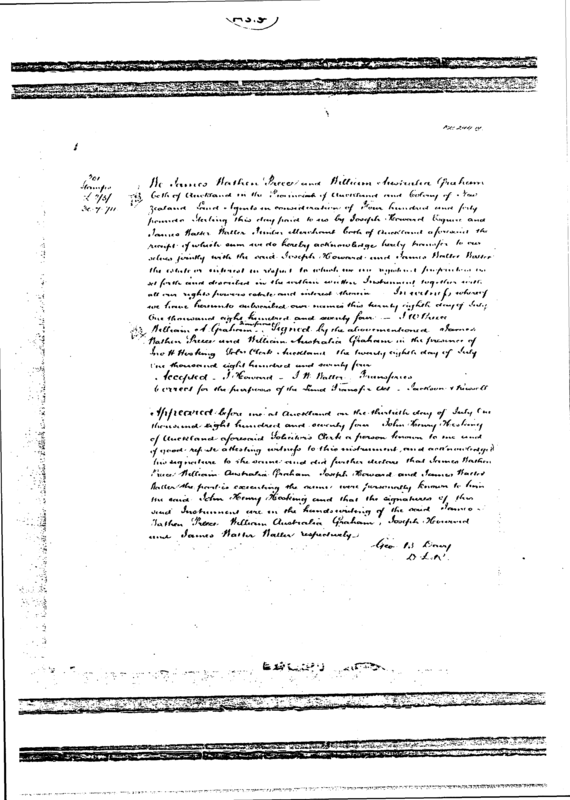 We James Wathen Preece and William Australia Graham
both of Auckland in the Province of Auckland and Colony of New
Zealand Land Agents in consideration of Four hundred and forty
pounds Sterling this day paid to us by Joseph Howard Esquire and
James Watter Watter Timber Merchant both of Auckland aforesaid the
receipt of which sum we do hereby acknowledge hereby transfer to our
selves jointly with the said Joseph Howard and James Watter Watter
the estate or interest in respect to which we are registered proprietors as
set forth and described in the within written Instrument together with
all our rights powers estate and interest therein In witness whereof
we have hereunto subscribed our names this twenty eighth day of July
One thousand eight hundred and seventy four J W Preece
William A. Graham Transferors Signed by the abovementioned James
Wathen Preece and William Australia Graham in the presence of
Jno H Hosking Sols Clerk Auckland the twenty eighth day of July
One thousand eight hundred and seventy four
Accepted J. Howard J W Watter Transferees
Correct for the purposes of the Land Transfer Act Jackson & Russell
Appeared before me at Auckland on the thirtieth day of July One
thousand eight hundred and seventy four John Henry Hosking
of Auckland aforesaid Solicitors Clerk a person known to me and
of good repute attesting witness to this instrument and acknowledged
his signature to the same and did further declare that James Wathen
Preece William Australia Graham Joseph Howard and James Watter
Watter the parties executing the same were personally known to him
the said John Henry Hosking and that the signatures of this
said Instrument are in the handwriting of the said James
Wathen Preece William Australia Graham, Joseph Howard
and James Watter Watter respectively
Geo B Davy
D.L.R.